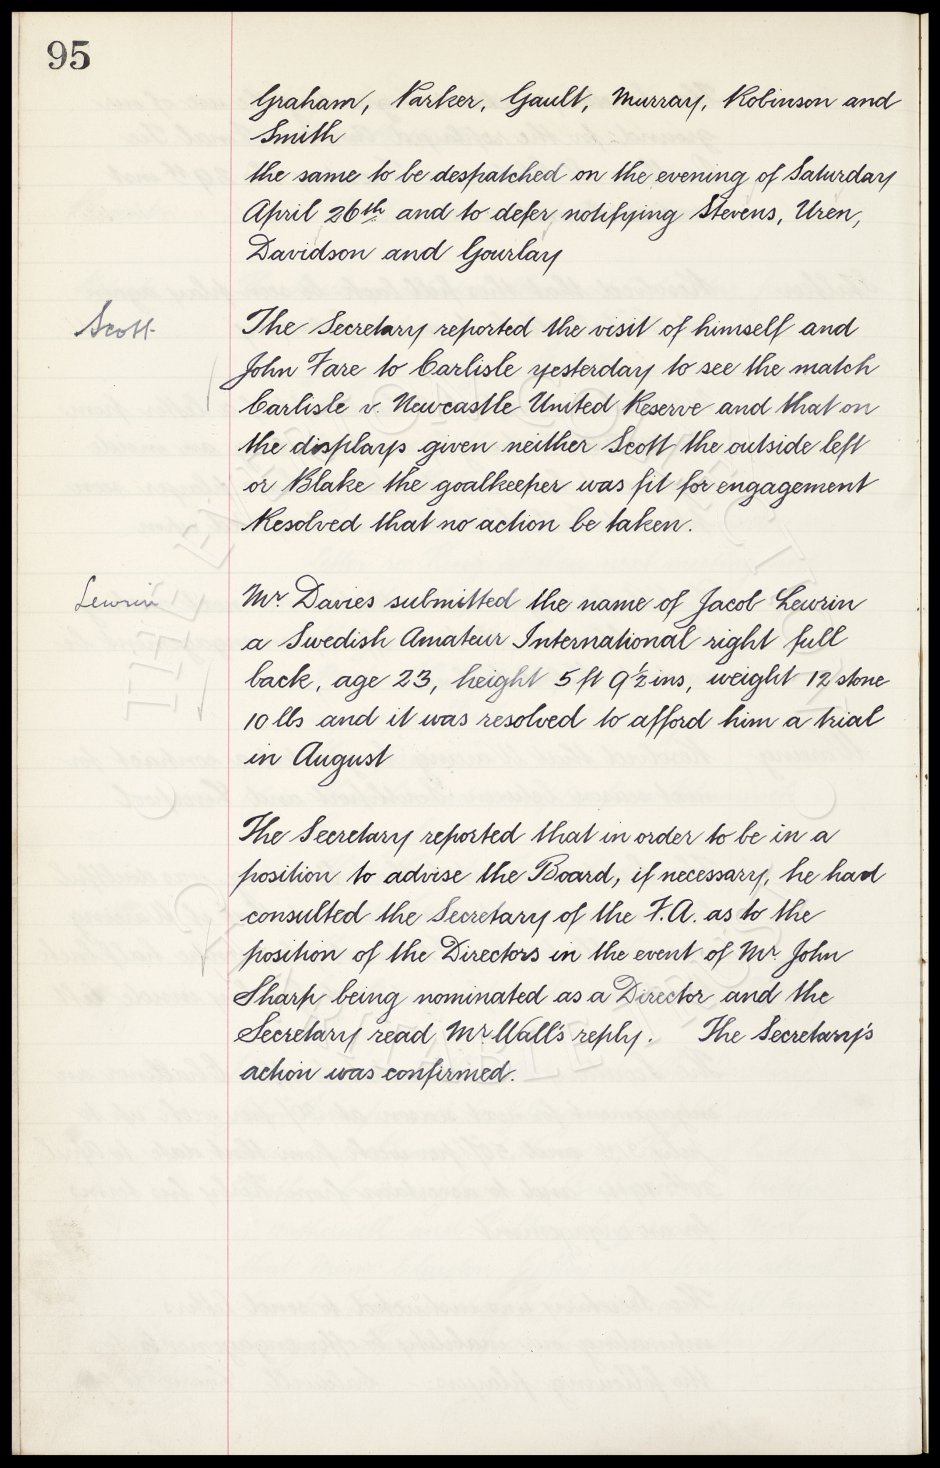 95
Graham, Parker, Gault, Murray, Robinson and
Smith
the same to be despatched on the evening of Saturday
April 26th and to defer notifying Stevens, Uren,
Davidson and Gourlay
Scott
The Secretary reported the visit of himself and
John Fare to Carlisle yesterday to see the match
Carlisle v. Newcastle United Reserve and that on
the displays given neither Scott the outside left
or Blake the goalkeeper was fit for engagement
Resolved that no action be taken.
Lewrin
Mr Davies submitted the name of Jacob Lewrin
a Swedish Amateur International right full
back, age 23, height 5 ft 9½ ins, weight 12 stone
10 lbs and it was resolved to afford him a trial
in August
The Secretary reported that in order to be in a
position to advise the Board, if necessary, he had
consulted the Secretary of the F.A. as to the
position of the Directors in the event of Mr. John
Sharp being nominated as a Director and the
Secretary read Mr Wall's reply. The Secretary's
action was confirmed.